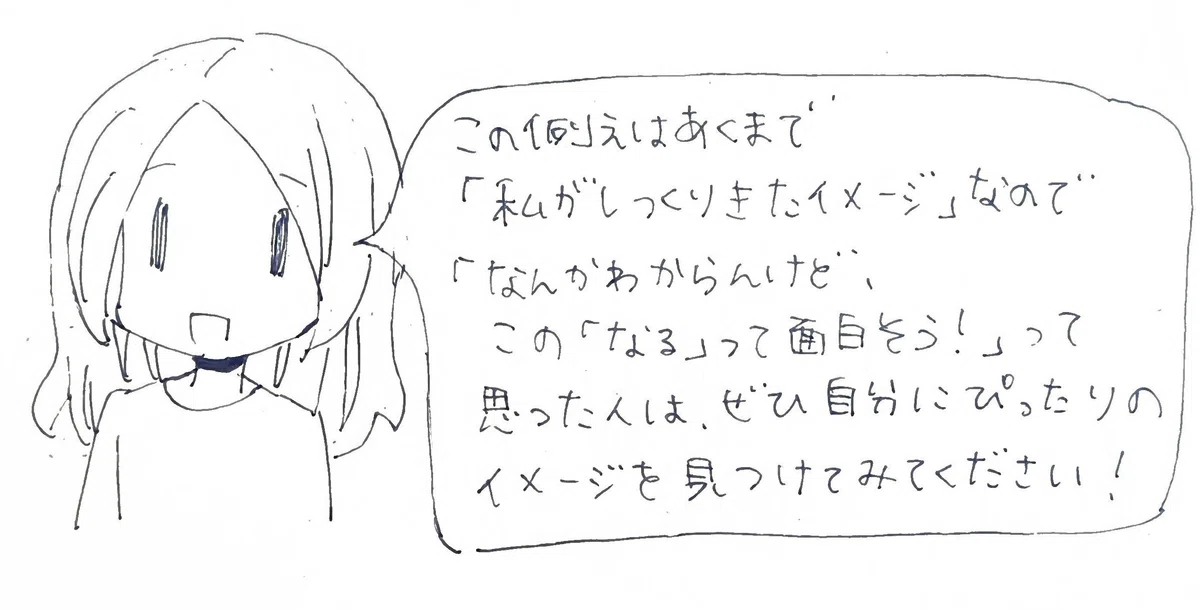 この例えはあくまで
「私がしっくりきたイメージ」なので
「なんかわからんけど、
この「なる」って面白そう！」って
思った人は、ぜひ自分にぴったりの
イメージを見つけてみてください！